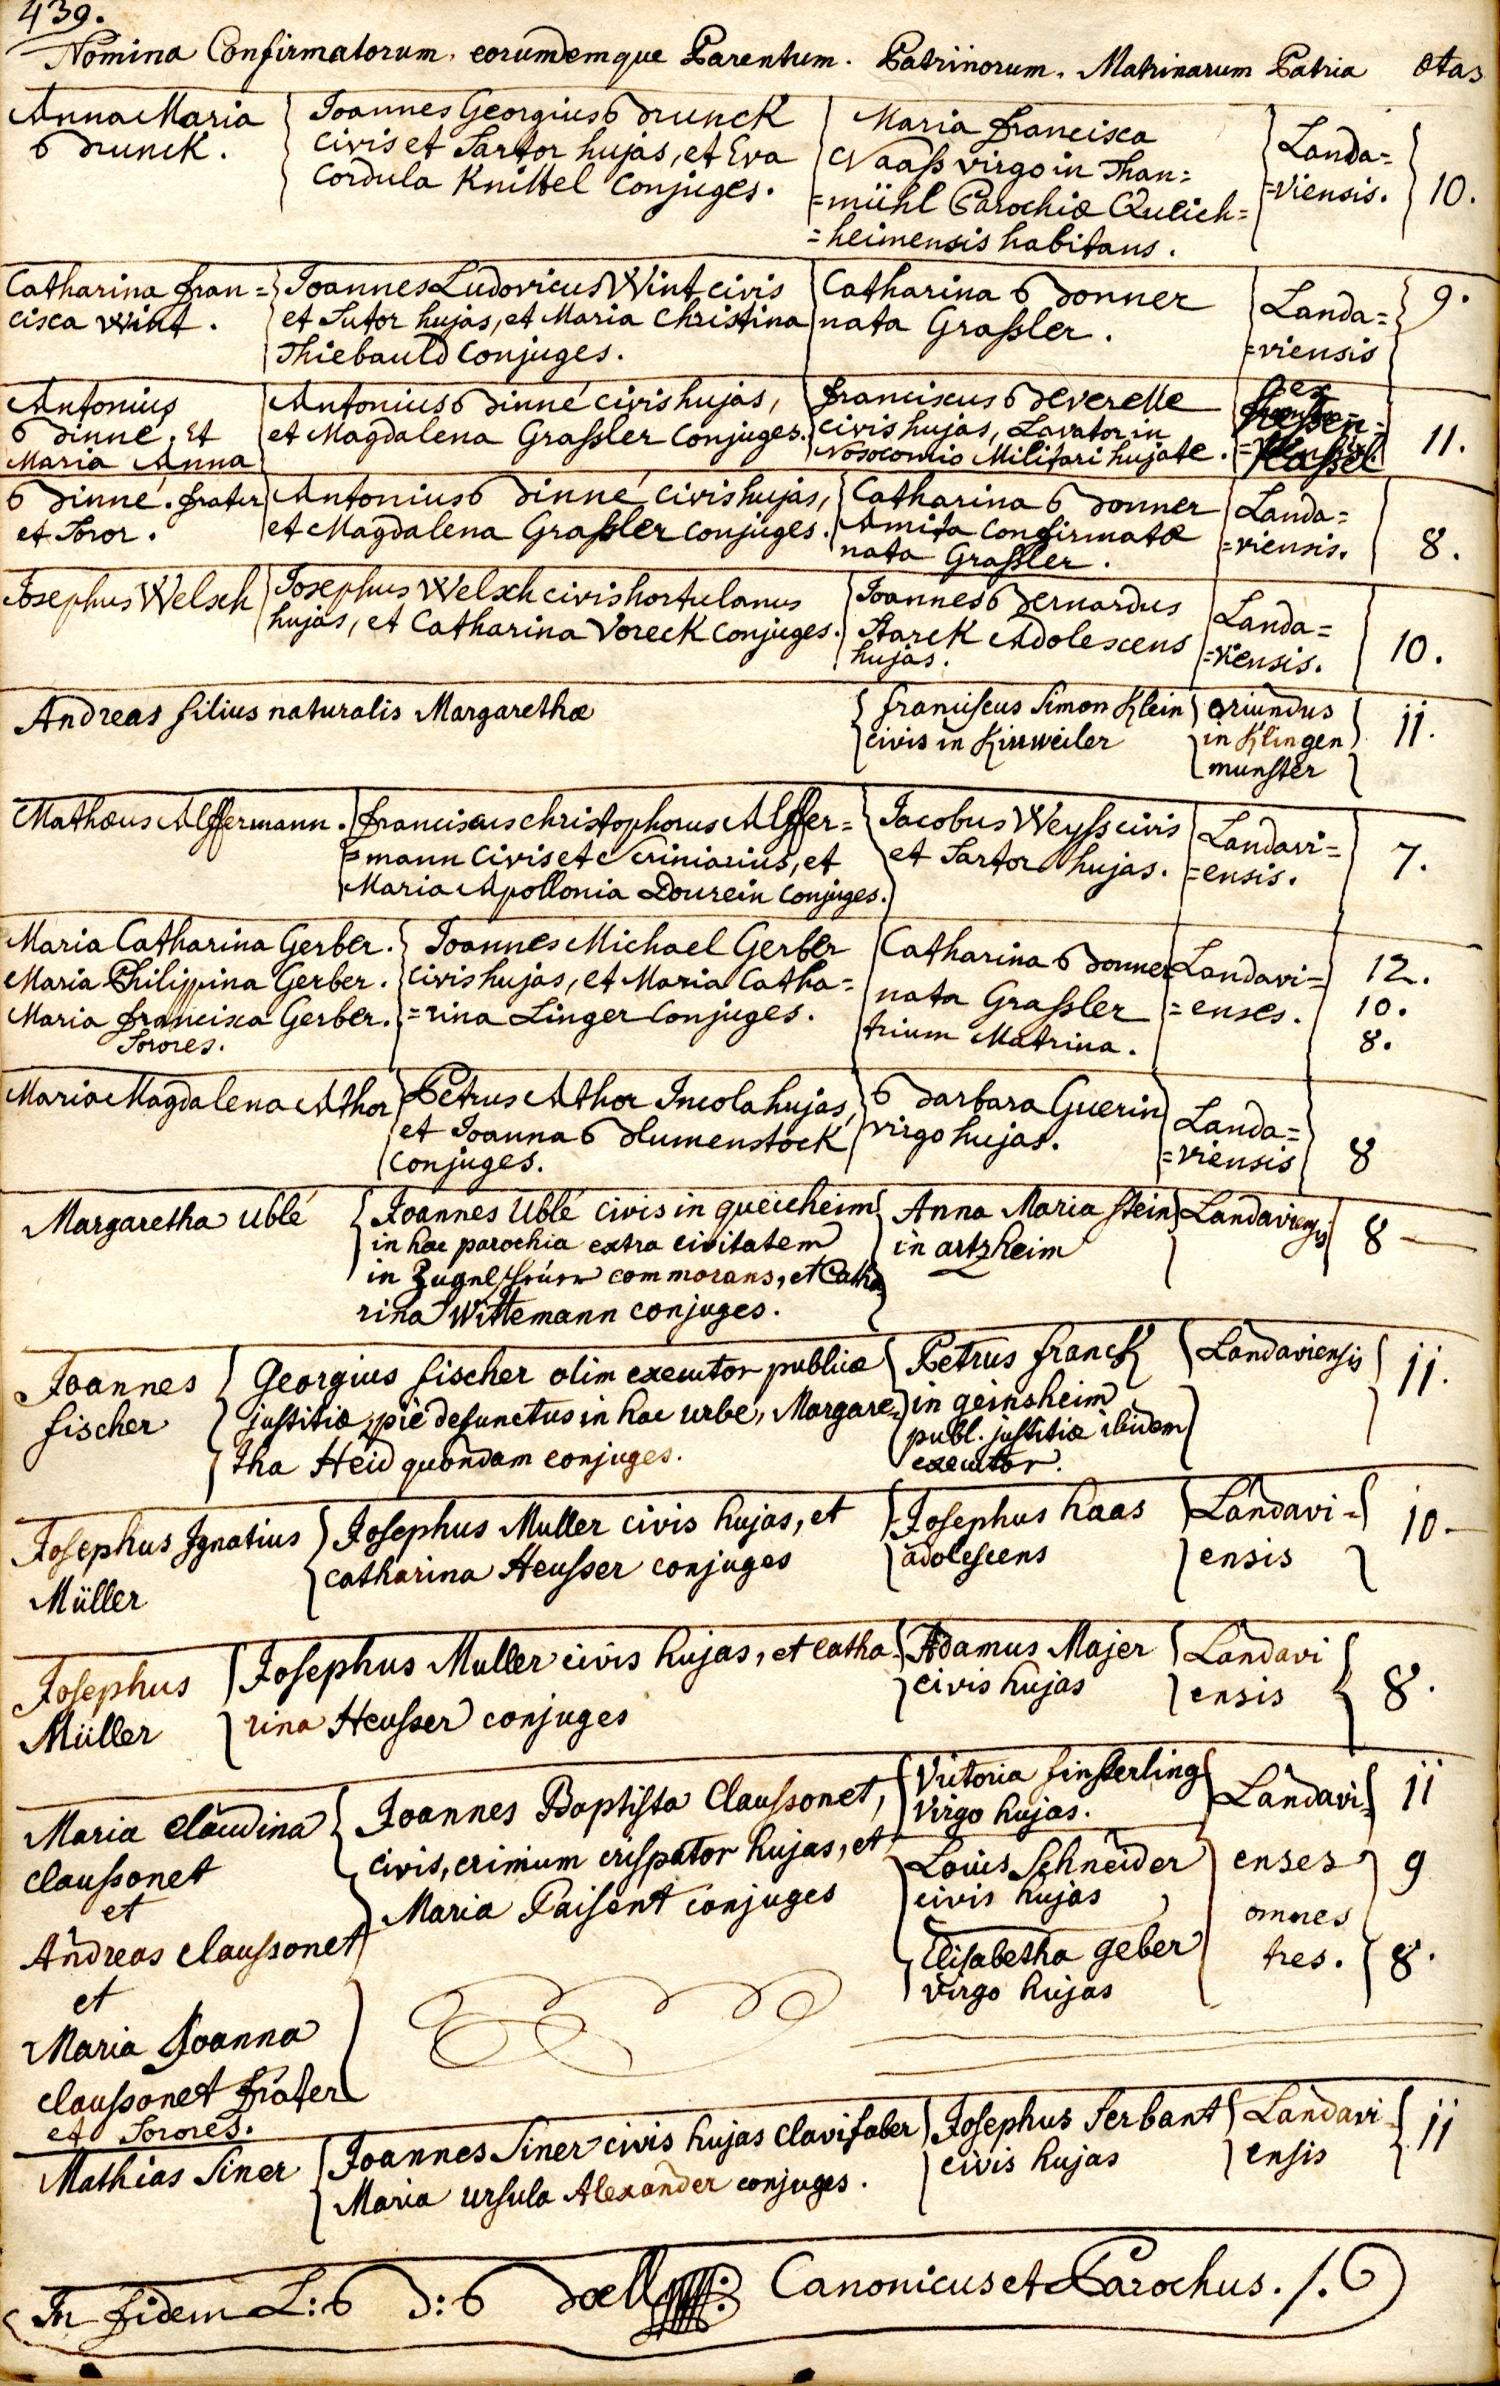 439.
Nomina Confirmatorum, eorumdemque Parentum. Patrinorum. Matrinarum Patria ætas
Anna Maria
Brunck.
Joannes Georgius Brunck
civis et Sartor hujas, et Eva
Cordula Knittel conjuges.
Maria Francisca
Naaß virgo in Than=
=mühl Parochiæ Queich=
=heimensis habitans.
Landa=
=viensis.
10.
Catharina Fran=
cisca Wint.
Joannes Ludovicus Wint civis
et Sutor hujas, et Maria Christina
Thiebauld conjuges.
Catharina Bonner
nata Graßler.
Landa=
=viensis
9.
Antonius
Binné, et
Maria Anna
Binné. Frater
et Soror.
Antonius Binné civis hujas,
et Magdalena Graßler conjuges.
Franciscus Beverelle
civis hujas, Lavator in
Nosocomio Militari hujate.
ex
Hessen=
Kassel
11.
Antonius Binné civis hujas,
et Magdalena Graßler conjuges.
Catharina Bonner
Amita Confirmatæ
nata Graßler.
Landa=
=viensis.
8.
Josephus Welsch
Josephus Welsch civis hortulanus
hujas, et Catharina Voreck conjuges.
Joannes Bernardus
Starck Adolescens
hujas.
Landa=
=viensis.
10.
Andreas filius naturalis Margarethæ
Franciscus Simon Klein
civis in Kirrweiler
oriundus
in Klingen
munster
11.
Mathæus Alffermann.
Franciscus Christophorus Alffer=
=mann civis et Criniarius, et
Maria Apollonia Dourein conjuges.
Jacobus Weyss civis
et Sartor hujas.
Landavi=
=ensis.
7.
Maria Catharina Gerber.
Maria Philippina Gerber.
Maria Francisca Gerber.
Sorores.
Joannes Michael Gerber
civis hujas, et Maria Catha=
=rina Linger conjuges.
Catharina Bonner
nata Graßler
trium Matrina.
Landavi=
=enses.
12.
10.
8.
Maria Magdalena Athor
Petrus Athor Incola hujas,
et Joanna Blumenstock
conjuges.
Barbara Guerin
virgo hujas.
Landa=
=viensis
8
Margaretha Ublé
Joannes Ublé civis in queicheim
in hac parochia extra civitatem
in commorans, et Catha
rina Wittemann conjuges.
Anna Maria Stein
in artzheim
Landaviensis
8
Joannes
fischer
Georgius fischer olim executor publicæ
justitiæ, pie defunctus in hac urbe, Margare=
tha Heid quondam conjuges.
Petrus franck
in geinsheim
publ. justitiæ ibidem
executor.
Landaviensis
11.
Josephus Ignatius
Müller
Josephus Muller civis hujas, et
catharina Heusser conjuges
Josephus haas
adolescens
Landavi=
ensis
10
Josephus
Müller
Josephus Muller civis hujas, et catha
rina Heusser conjuges
Adamus Majer
civis hujas
Landavi
ensis
8.
Maria Claudina
claussonet
et
Andreas claussonet
et
Maria Joanna
claussonet frater
et Sorores.
Joannes Baptista Claussonet,
civis, crinium crispator hujas, et
Maria Paisent conjuges
Victoria finsterling
virgo hujas.
Louis Schneider
civis hujas
Elisabetha geber
virgo hujas
Landavi=
enses
omnes
tres.
11
9
8.
Mathias Siner
Joannes Siner civis hujas clavifaber
Maria ursula Alexander conjuges.
Josephus Serbant
civis hujas
Landavi
ensis
11
In fidem L: B D: B Canonicus et Parochus.